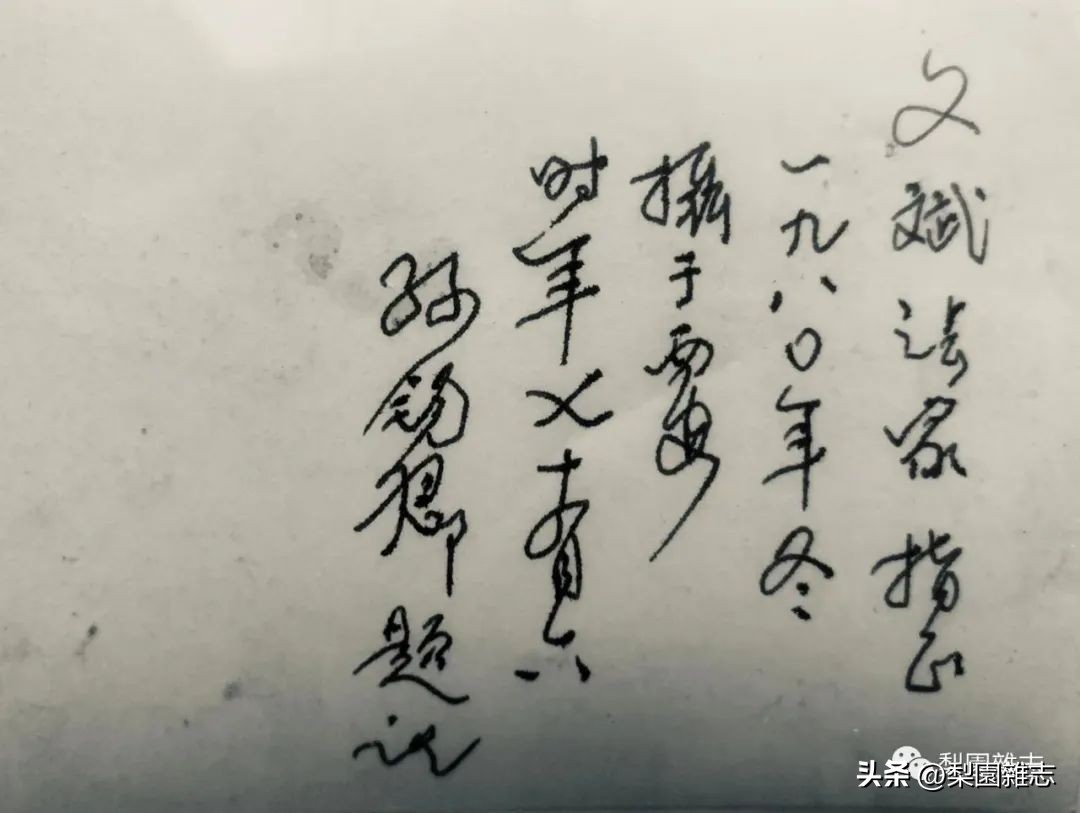 文斌法家指正
一九八〇年冬
攝于西安
时年七十有六
孙锡卿题
梨園雜志
头条 @梨園雜志